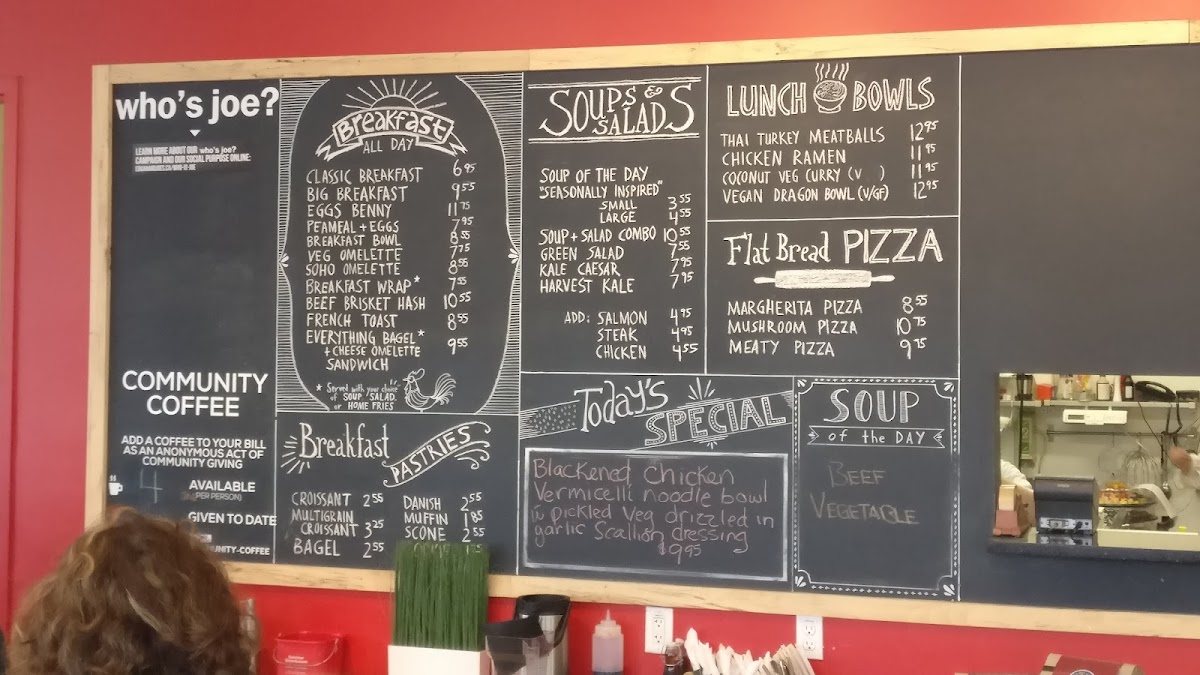 who's joe?
LEARN MORE ABOUT OUR who's joe?
CAMPAIGN AND OUR SOCIAL PURPOSE ONLINE:
COMMUNITY
COFFEE
ADD A COFFEE TO YOUR BILL
AS AN ANONYMOUS ACT OF
COMMUNITY GIVING
4 AVAILABLE
PER PERSON)
GIVEN TO DATE
Breakfast
ALL DAY
CLASSIC BREAKFAST 6.95
BIG BREAKFAST 9.55
EGGS BENNY 11.75
PEAMEAL + EGGS 7.95
BREAKFAST BOWL 8.55
VEG OMELETTE 7.75
SOHO OMELETTE 8.55
BREAKFAST WRAP* 7.55
BEEF BRISKET HASH 10.55
FRENCH TOAST 8.55
EVERYTHING BAGEL* 9.55
+ CHEESE OMELETTE
SANDWICH
* Served with your choice
of SOUP, SALAD,
or HOME FRIES
Breakfast
PASTRIES
CROISSANT 2.55
MULTIGRAIN
CROISSANT 3.25
BAGEL 2.55
DANISH 2.55
MUFFIN 1.85
SCONE 2.55
SOUPS &
SALADS
SOUP OF THE DAY
"SEASONALLY INSPIRED"
SMALL 3.55
LARGE 4.55
SOUP + SALAD COMBO 10.55
GREEN SALAD 7.55
KALE CAESAR 7.95
HARVEST KALE 7.95
ADD: SALMON 4.95
STEAK 4.95
CHICKEN 4.55
LUNCH BOWLS
THAI TURKEY MEATBALLS 12.95
CHICKEN RAMEN 11.95
COCONUT VEG CURRY (V ) 11.95
VEGAN DRAGON BOWL (V/GF) 12.95
Flat Bread PIZZA
MARGHERITA PIZZA 8.55
MUSHROOM PIZZA 10.75
MEATY PIZZA 9.75
Today's
SPECIAL
Blackened Chicken
Vermicelli noodle bowl
w pickled Veg drizzled in
garlic Scallion dressing
$9.95
SOUP
of the DAY
BEEF
VEGETABLE